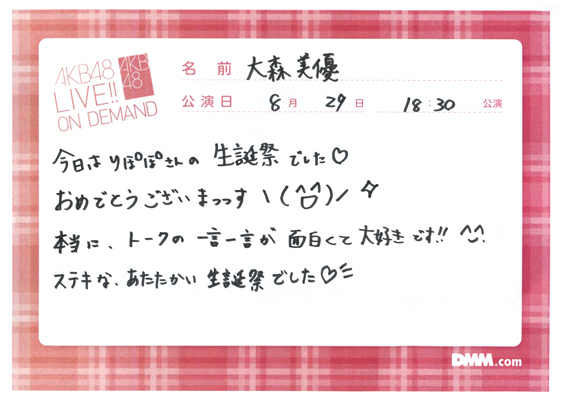 AKB48
LIVE!!
ON DEMAND
AKB
48
名前 大森美優
公演日 8月 29日 18:30 公演
今日は りぽぽさんの 生誕祭 でした♡
おめでとうございまっっす \(^□^)/ ✧
本当に、トークの 一言一言が 面白くて 大好きです!! ^^
ステキな、あたたかい 生誕祭でした♡
DMM.com